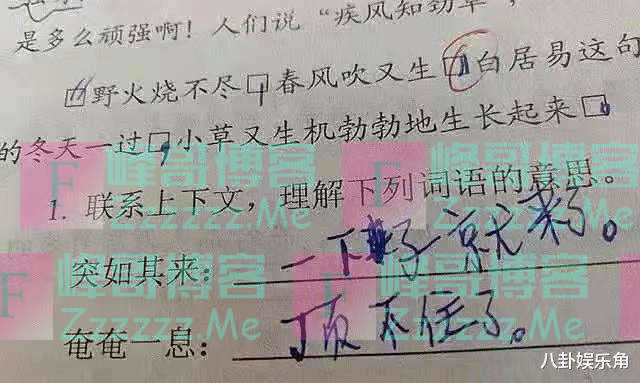 是多么顽强啊！人们说“疾风知劲草”，
“野火烧不尽，春风吹又生”白居易这句
的冬天一过，小草又生机勃勃地生长起来。
1. 联系上下文，理解下列词语的意思。
突如其来：一下子就来了。
奄奄一息：顶不住了。
峰哥博客
Zzzzzz.Me
八卦娱乐角